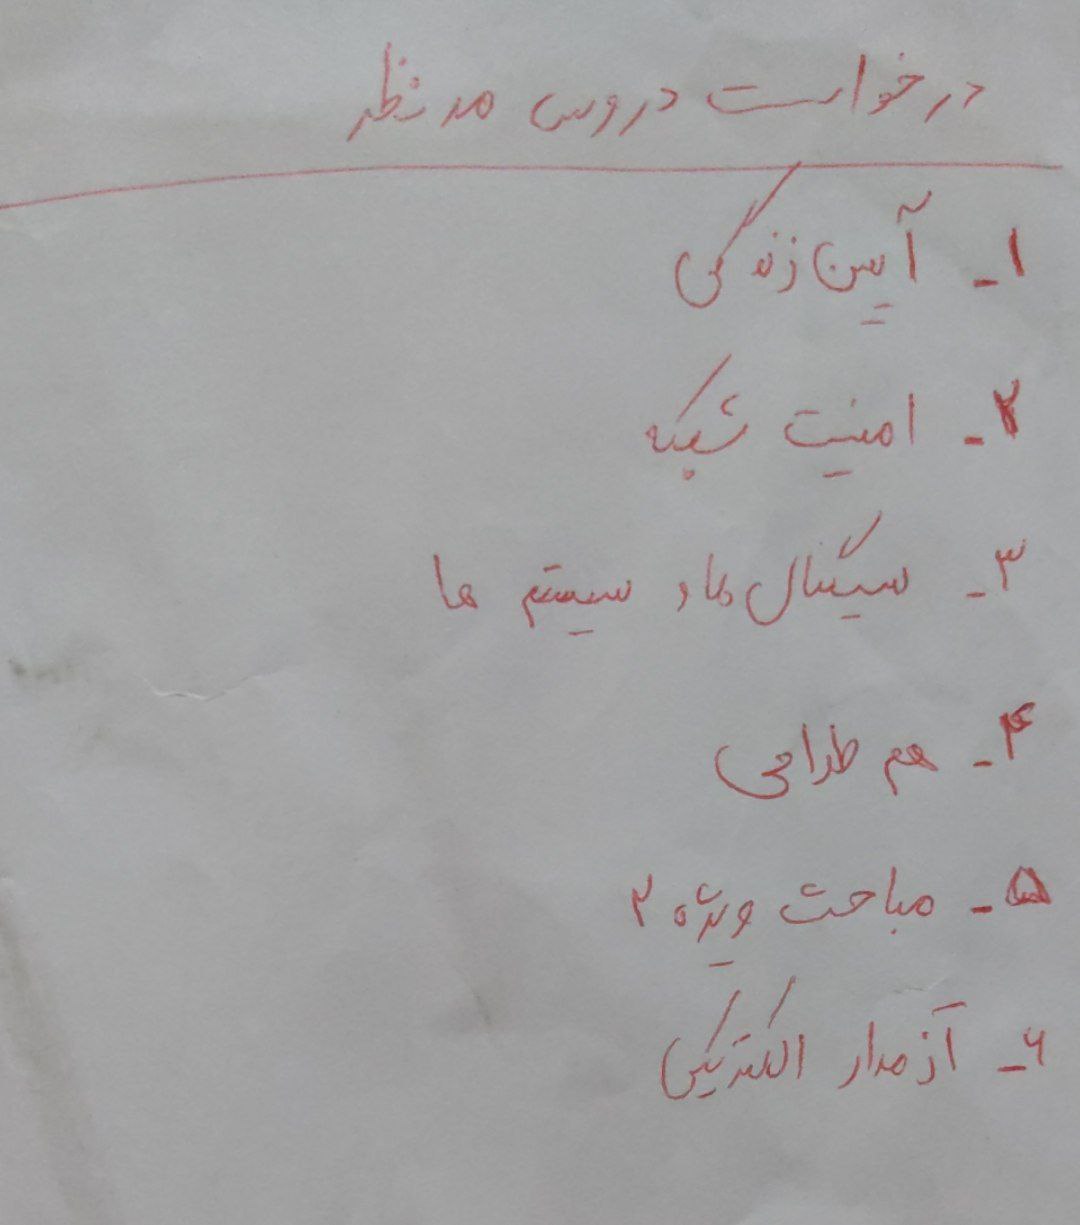 درخواست دروس مد نظر
۱- آیین زندگی
۲- امنیت شبکه
۳- سیگنال ها و سیستم ها
۴- هم طراحی
۵- مباحث ویژه ۲
۶- آز مدار الکتریکی